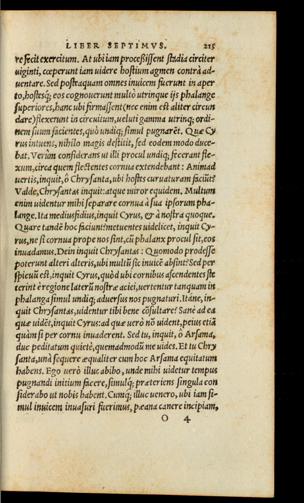 LIBER SEPTIMVS. 215
re fecit exercitum. At ubi iam processissent stadia circiter
uiginti, cœperunt iam uidere hostium agmen contrà ad-
uentare. Sed postraquam omnes inuicem fuerunt in aper
to, hostesq; eos cognouerunt multò utrinque ijs phalange
superiores, hanc ubi firmassent (nec enim est aliter circun
dare) flexerunt in circuitum, ueluti gamma utrinq; ordi-
nem suum facientes, quò undiq; simul pugnarēt. Quæ Cy
rus intuens, nihilo magis destitit, sed eodem modo duce-
bat. Verùm considerans ut illi procul undiq; fecerant fle-
xum, circa quem flectentes cornua extendebant: Animad
uertis, inquit, ô Chrysanta, ubi hostes curuaturam faciūt?
Valde, Chrysantas inquit: atque miror equidem. Multum
enim uidentur mihi separare cornua à sua ipsorum pha-
lange. Ita mediusfidius, inquit Cyrus, & à nostra quoque.
Quare tandē hoc faciunt? metuentes uidelicet, inquit Cy-
rus, ne si cornua prope nos sint, cū phalanx procul sit, eos
inuadamus. Dein inquit Chrysantas: Quomodo prodesse
poterunt alteri alteris, ubi multū sic inuicē absint? Sed per
spicuū est, inquit Cyrus, quòd ubi cornibus ascendentes ste
terint è regione laterū nostræ aciei, uertentur tanquam in
phalangē simul undiq; aduersus nos pugnaturi. Itáne, in-
quit Chrysantas, uidentur tibi bene cōsultare? Sanè ad ea
quæ uidēt, inquit Cyrus: ad quæ uerò nō uident, peius etiā
quàm si per cornu inuaderent. Sed tu, inquit, ô Arsama,
duc peditatum quietè, quemadmodū me uides. Et tu Chry
santa, unà sequere æqualiter cum hoc Arsama equitatum
habens. Ego uerò illuc abibo, unde mihi uidetur tempus
pugnandi initium facere, simulq; præteriens singula con
siderabo ut nobis habent. Cumq; illuc uenero, ubi iam si-
mul inuicem inuasuri fuerimus, pæana canere incipiam,
O 4